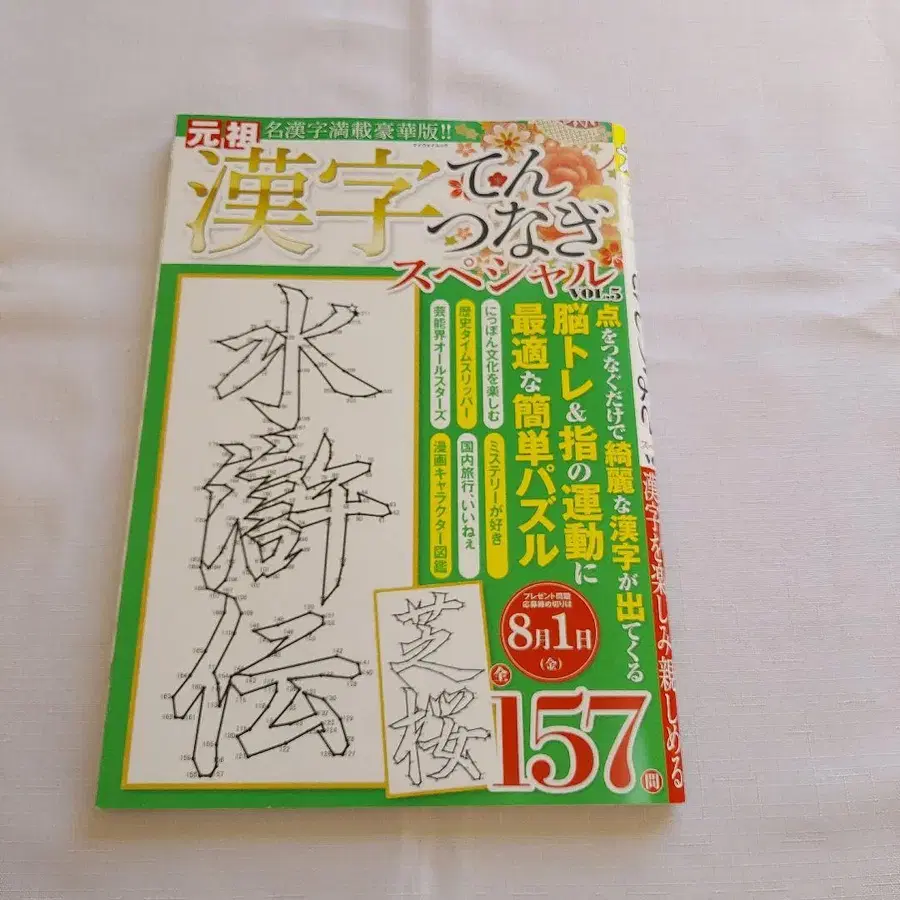 元祖 名漢字満載豪華版!!
漢字てんつなぎ
スペシャル
VOL.5
点をつなぐだけで綺麗な漢字が出てくる
脳トレ&指の運動に
最適な簡単パズル
にっぽん文化を楽しむ
歴史タイムスリッパー
芸能界オールスターズ
ミステリーが好き
国内旅行、いいねぇ
漫画キャラクター図鑑
水滸伝
芝桜
プレゼント問題
応募締め切りは
8月1日
(金)
全157問
漢字を楽しみ親しめる